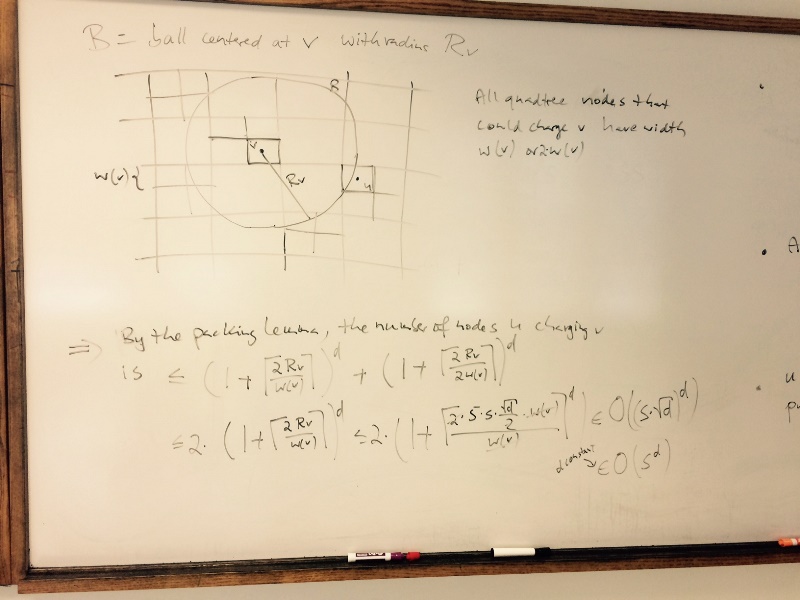 B = ball centered at v with radius Rv
All quadtree nodes that
could charge v have width
w(v) or 2·w(v)
B
v
w(v){
Rv
u
⇒ By the packing lemma, the number of nodes u charging v
is ≤ (1 + ⌈2Rv/w(v)⌉)^d + (1 + ⌈2Rv/2w(v)⌉)^d
≤ 2 · (1 + ⌈2Rv/w(v)⌉)^d ≤ 2 · (1 + ⌈2·5·s·√d/2·w(v)/w(v)⌉)^d ∈ O((s·√d)^d)
d constant ↘ ∈ O(s^d)
A
u